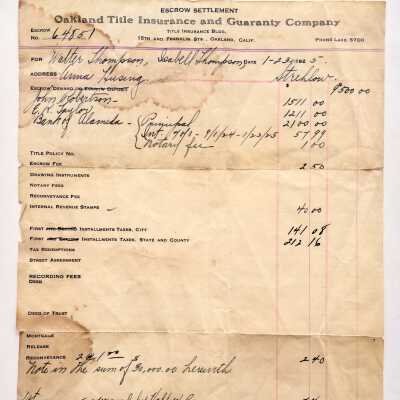 ESCROW SETTLEMENT
Oakland Title Insurance and Guaranty Company
ESCROW NO. 64851
TITLE INSURANCE BLDG.
15TH AND FRANKLIN STS., OAKLAND, CALIF.
PHONE LAKE 5700
FOR Walter Thompson, Isabell Thompson DATE 1-23-1925.
ADDRESS Anna Husing Strehlow $ 9500 00
ESCROW DEMAND OR ESCROW DEPOSIT
John Robertson 1511 00
E. H. Taylor 1211 00
Bank of Alameda - Principal 2100 00
Int. 7% - 9/1/24 - 1/23/25 57 99
Notary fee 1 00
TITLE POLICY NO.
ESCROW FEE 2 50
DRAWING INSTRUMENTS
NOTARY FEES
RECONVEYANCE FEE
INTERNAL REVENUE STAMPS 40 00
FIRST AND SECOND INSTALLMENTS TAXES, CITY 141 08
FIRST AND SECOND INSTALLMENTS TAXES, STATE AND COUNTY 212 16
TAX REDEMPTIONS
STREET ASSESSMENT
RECORDING FEES
DEED
DEED OF TRUST
MORTGAGE
RELEASE
RECONVEYANCE 2 40
Note in the sum of herewith